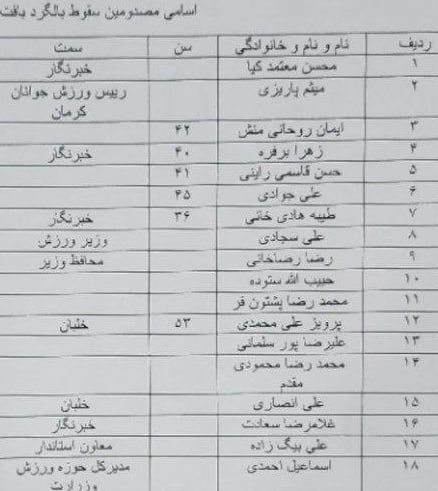 اسامی مصدومین سقوط بالگرد بافت
ردیف نام و نام و خانوادگی سن سمت
۱ محسن معتمد کیا خبرنگار
۲ میثم پاریزی رییس ورزش جوانان
کرمان
۳ ایمان روحانی منش ۴۲
۴ زهرا برفره ۴۰ خبرنگار
۵ حسن قاسمی راینی ۴۱
۶ علی جوادی ۴۵
۷ طیبه هادی خانی ۳۶ خبرنگار
۸ علی سجادی وزیر ورزش
۹ رضا رضاخانی محافظ وزیر
۱۰ حبیب الله ستوده
۱۱ محمد رضا پشتون فر
۱۲ پرویز علی محمدی ۵۳ خلبان
۱۳ علیرضا پور سلمانی
۱۴ محمد رضا محمودی
مقدم
۱۵ علی انصاری خلبان
۱۶ غلامرضا سعادت خبرنگار
۱۷ علی بیگ زاده معاون استاندار
۱۸ اسماعیل احمدی مدیرکل حوزه ورزش
وزارت